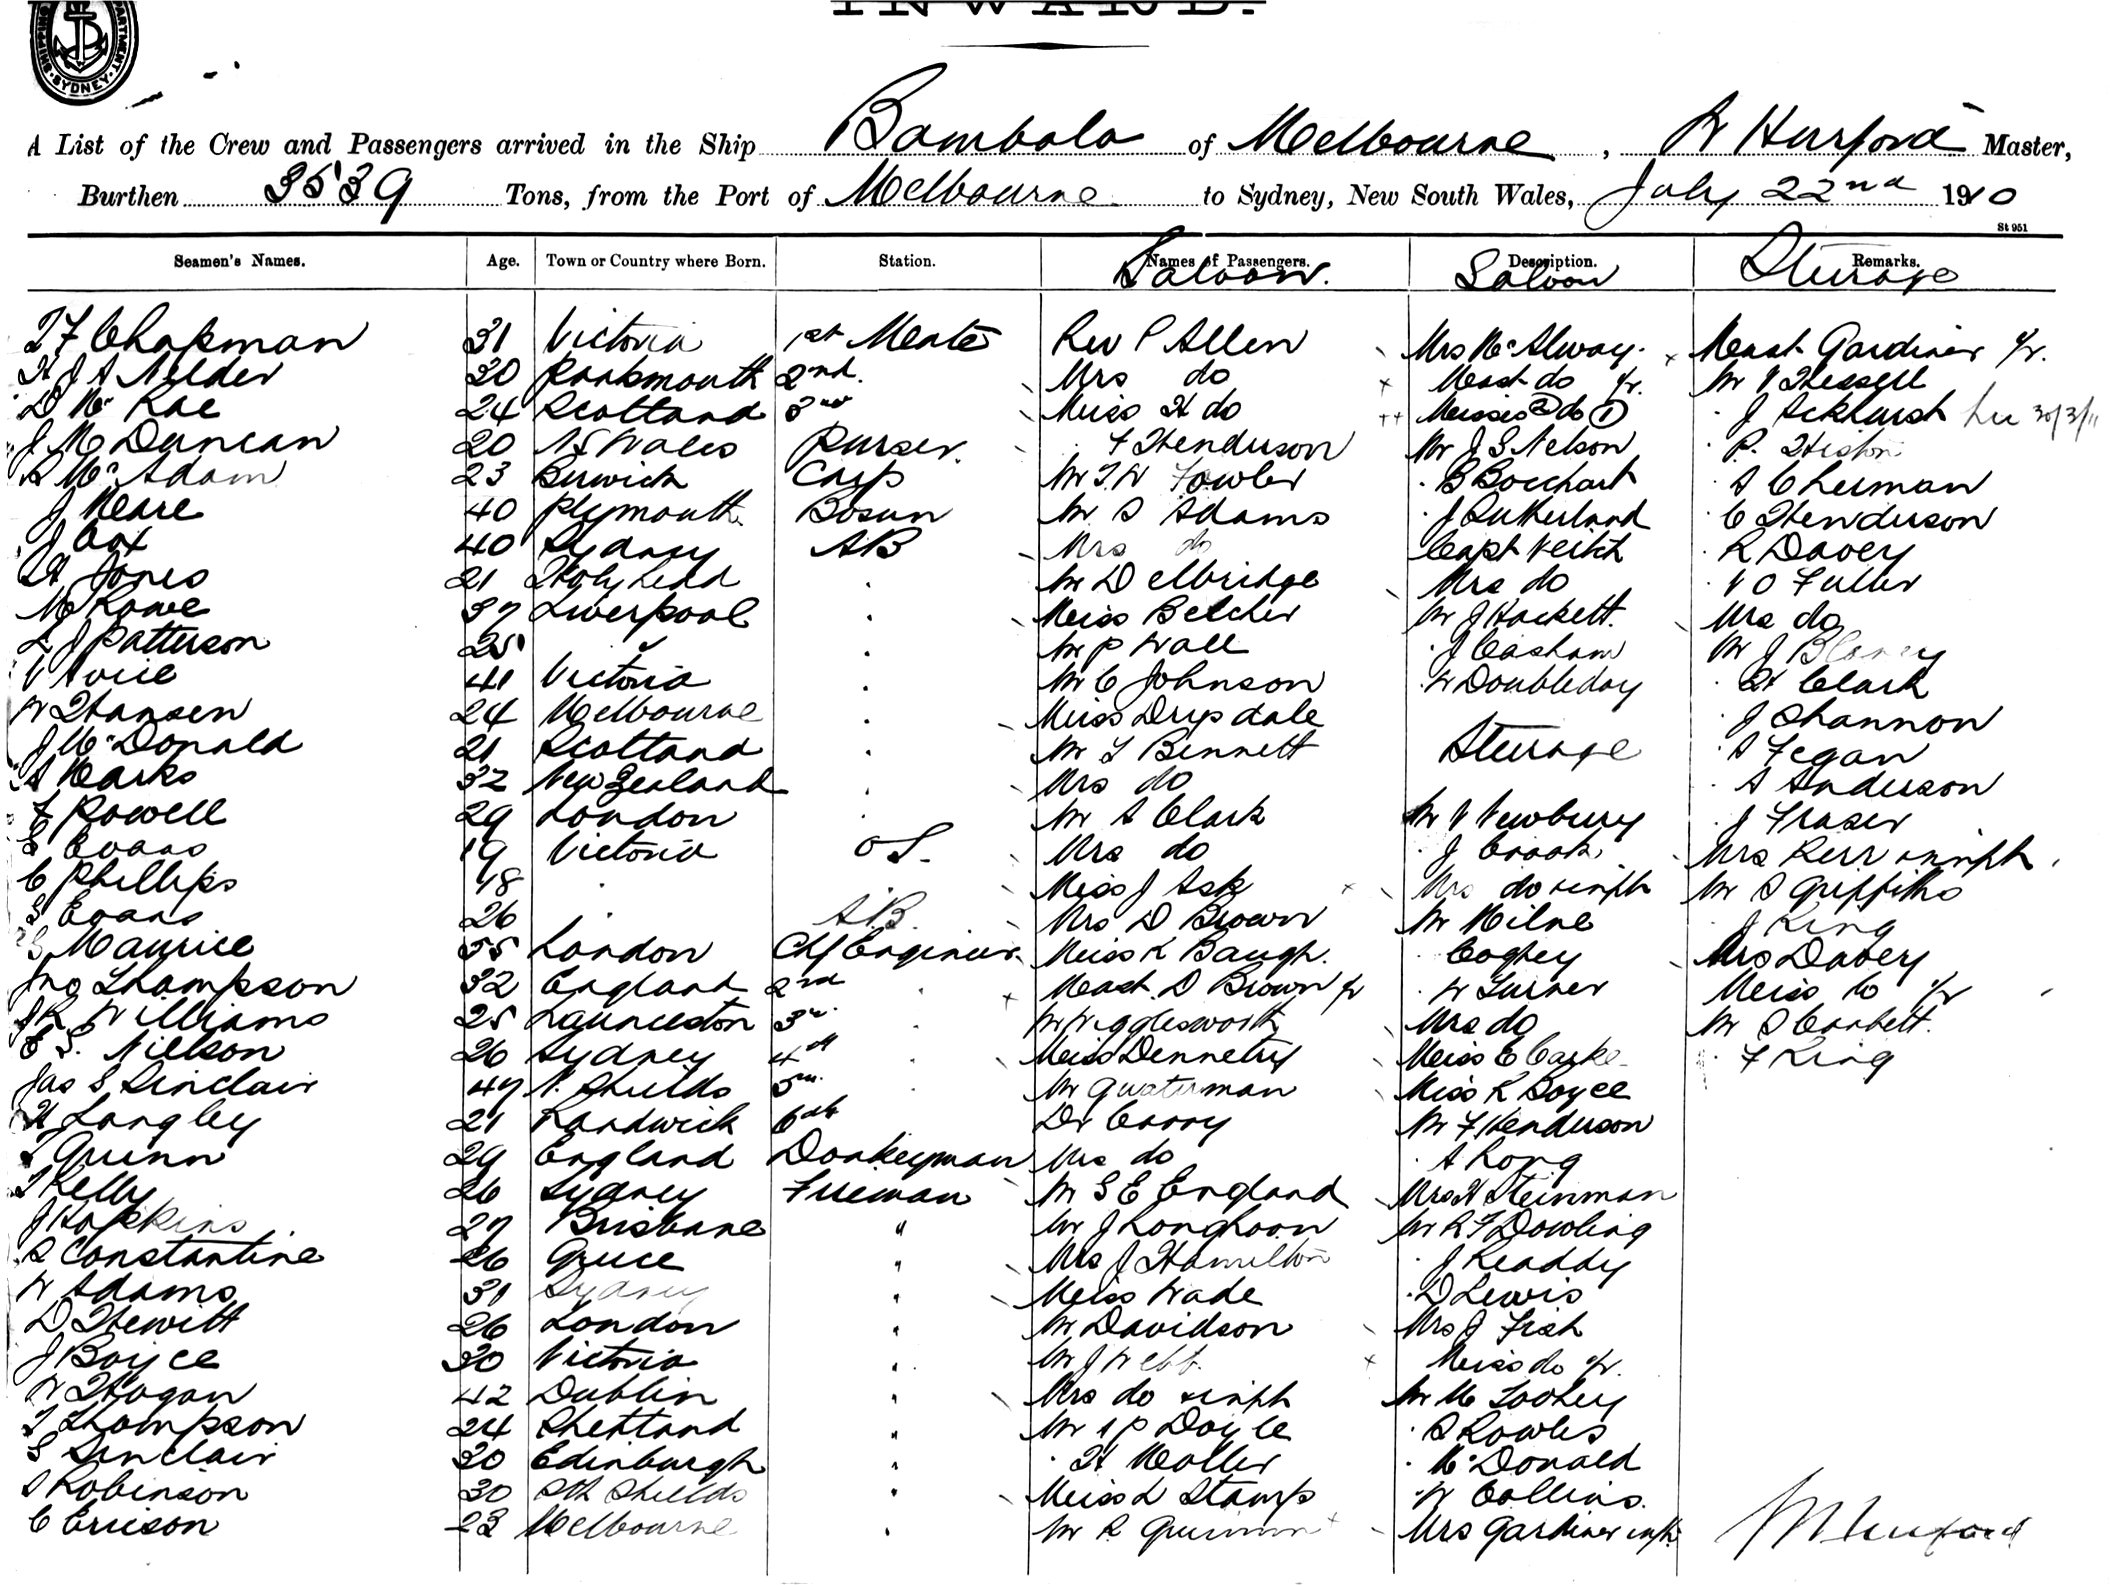 INWARD.
SHIPPING DEPARTMENT SYDNEY
A List of the Crew and Passengers arrived in the Ship Bombala of Melbourne, W Hurford Master,
Burthen 3539 Tons, from the Port of Melbourne to Sydney, New South Wales, July 22nd 1910
St 951
Seamen's Names. Age. Town or Country where Born. Station. Names of Passengers. Description. Remarks.
Saloon. Saloon Steerage
T F Chapman 31 Victoria 1st Mate Rev P Allen Mrs McAlway Mast Gardiner yr.
H J A Nelder 30 Portsmouth 2nd. Mrs do Mast do yr. Mr V Hessell
D Mc Rae 24 Scotland 3rd Miss H do Misses 2 do 1 J Ackhurst
J M Duncan 20 N S Wales Purser. F Henderson Mr J S Nelson P.
R Mc Adam 23 Berwick Carp Mr T. W Fowler B Borchart S Cherman
J Meare 40 Plymouth Bosun Mr S Adams J Sutherland C Henderson
J Cox 40 Sydney AB Mrs do Capt Veitch R Davey
H Jones 21 Holyhead . Mr D Elbridge Mrs do V O Fuller
M Rowe 37 Liverpool . Miss Belcher Mr J Hackett. Mrs do
L J Patterson 25 . Mr P Wall J Casham Mr J
V Avice 41 Victoria . Mr C Johnson W Doubleday H Clark
W Hansen 24 Melbourne . Miss Drysdale J Shannon
J McDonald 21 Scotland . Mr T Bennett Steerage S Fegan
A Marks 32 New Zealand . Mrs do A Anderson
F Powell 29 London . Mr A Clark Mr V Newbury J Fraser
E Evans 19 Victoria OS. Mrs do J Crook Mrs Kerr & inft
C Phillips 18 . Miss J Ask Mrs do & inft Mr S Griffiths
S Evans 26 . AB. Mrs D Brown Mr Milne J King
S Maurice 55 London Chf Engineer Miss K Baugh. Coghey Mrs Davey
Jno Thompson 32 England 2nd Mast. D Brown yr W Turner Miss do yr
J R Williams 25 Launceston 3rd Mr Wigglesworth Mrs do Mr S Corbett.
E S. Nielson 26 Sydney 4th Miss Dennetry Miss E F King
Jas S Sinclair 47 N. Shields 5th Mr Quaterman Miss K Boyce
H Langley 21 Randwick 6th Dr Corry Mr F Henderson
Quinn 29 England Donkeyman Mrs do A Kong
T Kelly 26 Sydney Fireman Mr S E England Mrs H Steinman
J Hopkins 27 Brisbane " Mr J Longhorn Mr R F Dowling
S Constantine 26 Greece " Mrs J Hamilton J Readdy
W Adams 31 Sydney " Miss Wade D Lewis
D Hewitt 26 London " Mr Davidson Mrs J Fish
J Boyce 30 Victoria " Mr J Webb. Miss do yr.
W Hogan 42 Dublin " Mrs do & inft Mr M Toohey
T Thompson 24 Shetland " Mr A P Doyle S Rowles
S Sinclair 30 Edinburgh " H Moller McDonald
S Robinson 30 Sth Shields " Miss L Stamp W Collins.
C Erricson 23 Melbourne " Mr R Mrs Gardiner inft.